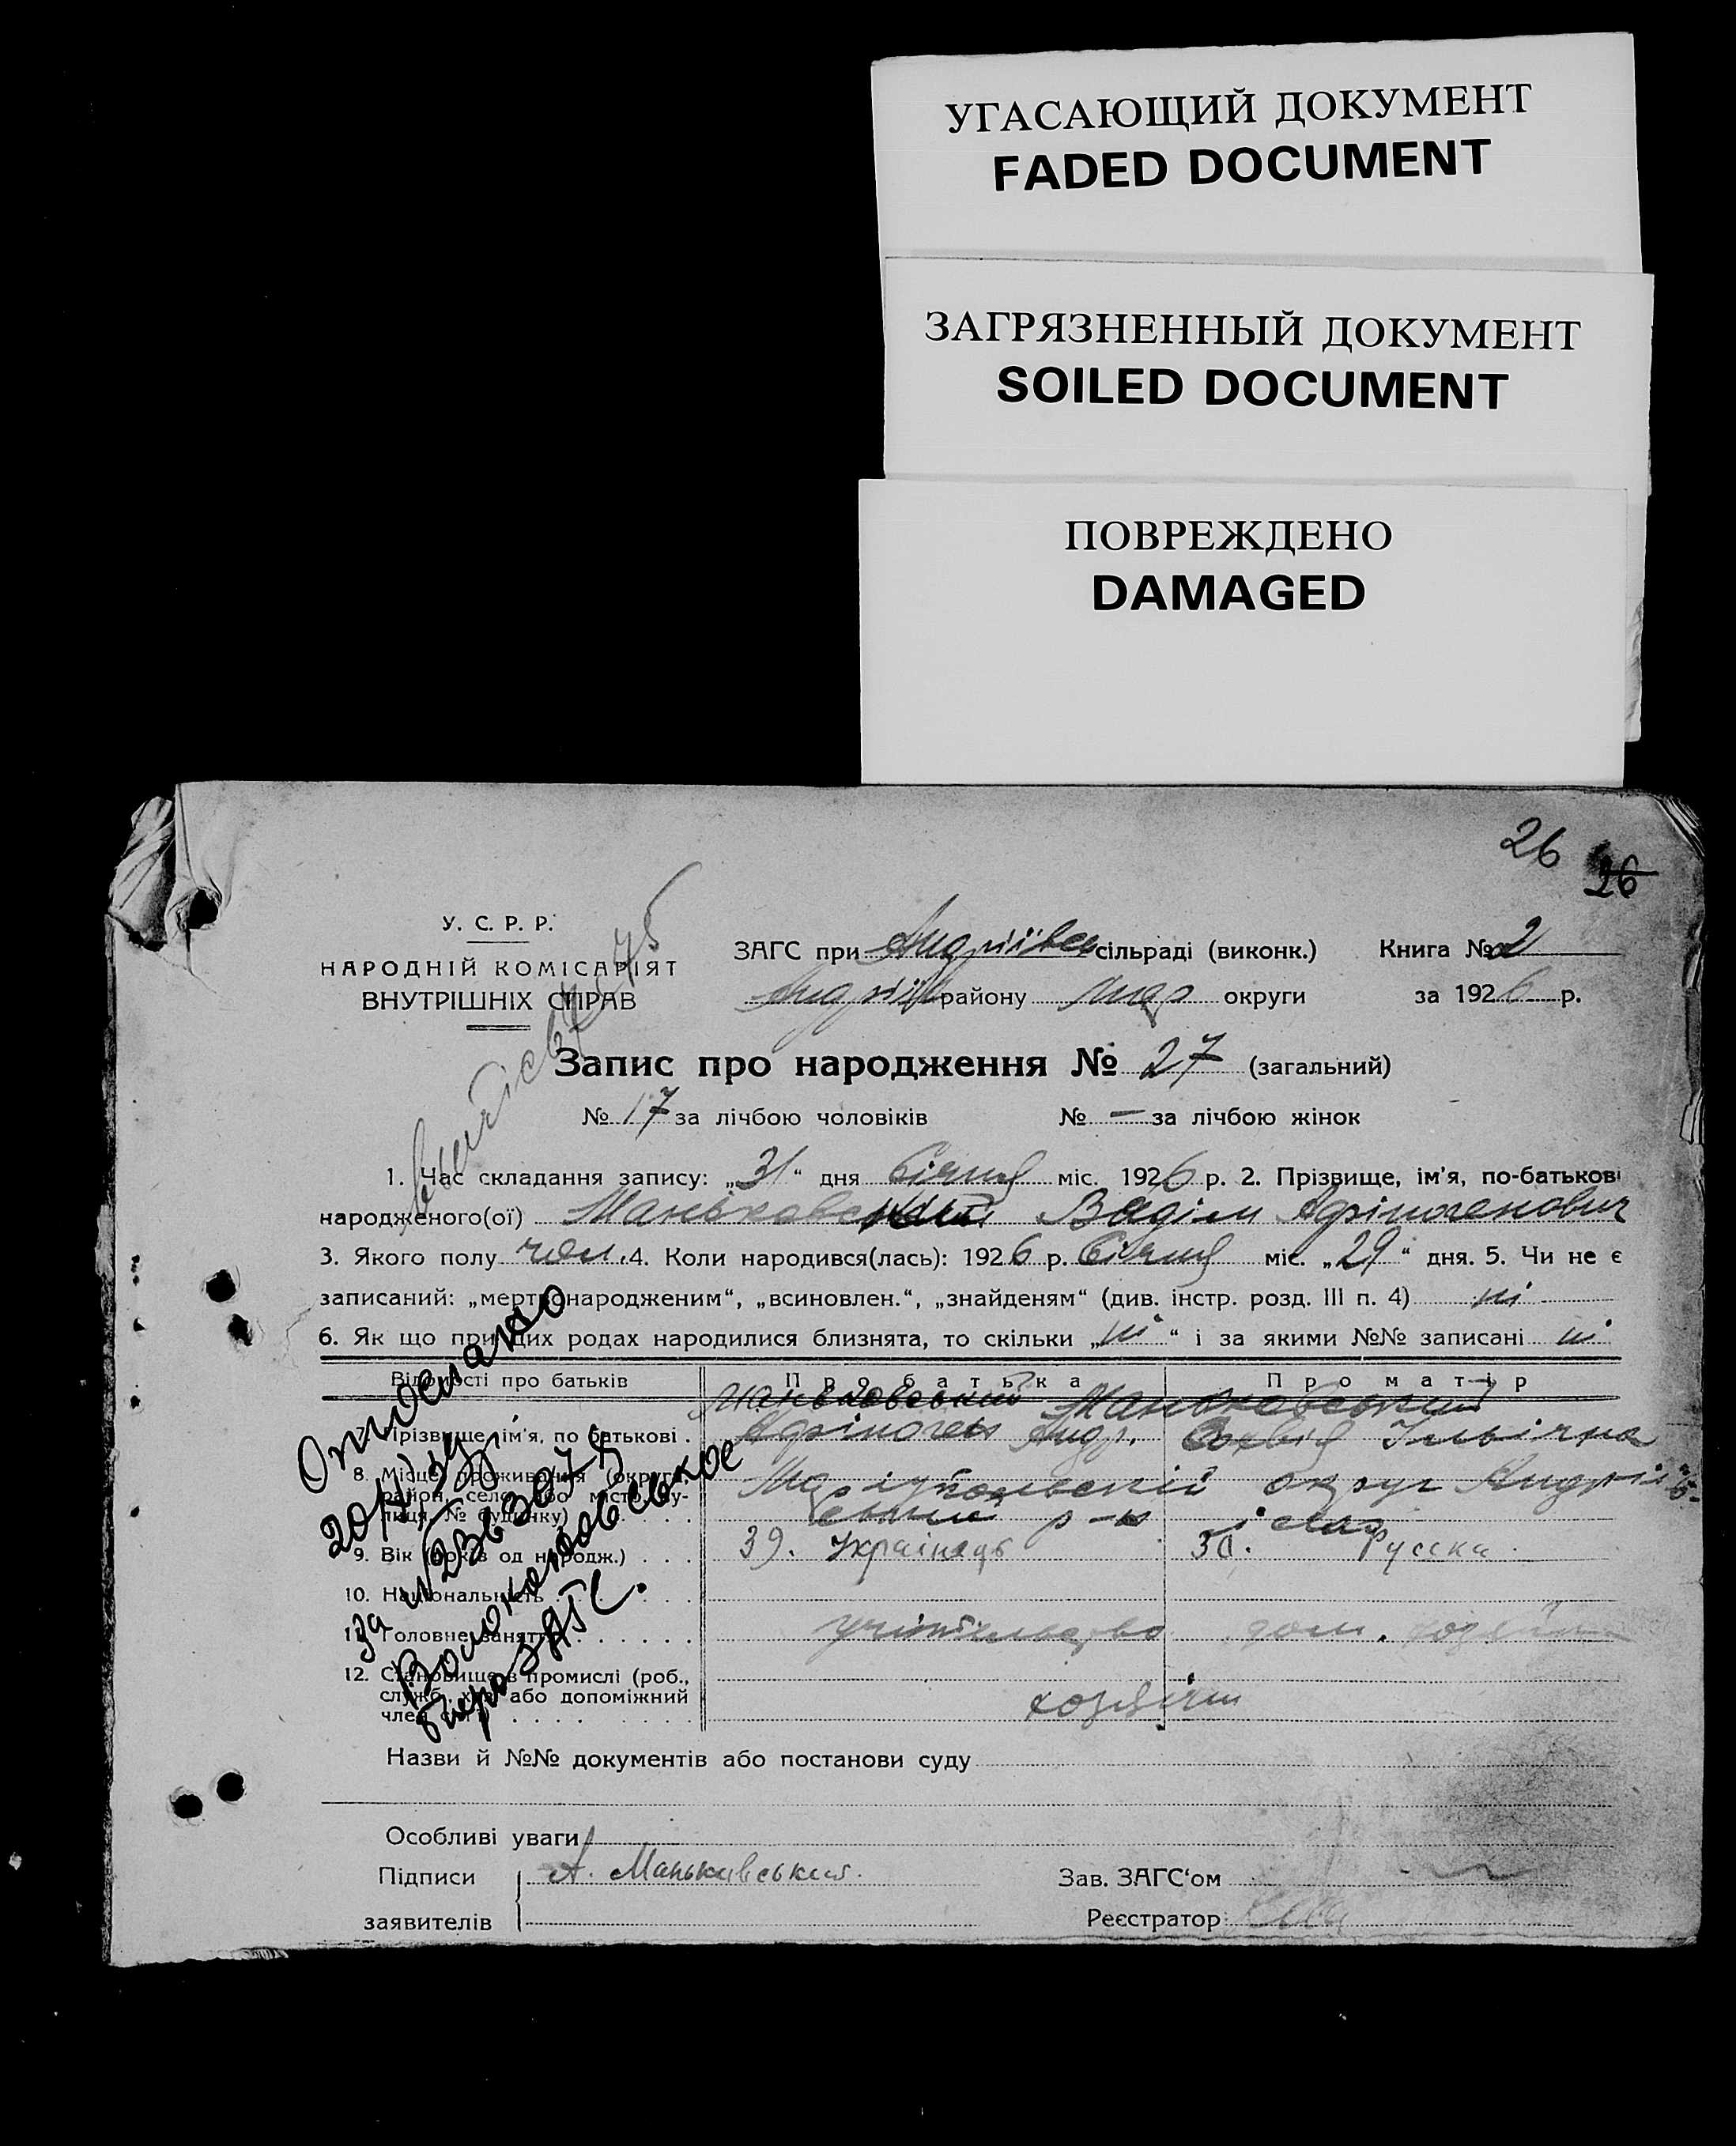 УГАСАЮЩИЙ ДОКУМЕНТ
FADED DOCUMENT
ЗАГРЯЗНЕННЫЙ ДОКУМЕНТ
SOILED DOCUMENT
ПОВРЕЖДЕНО
DAMAGED
26
26
У. С. Р. Р.
НАРОДНІЙ КОМІСАРІЯТ
ВНУТРІШНІХ СПРАВ
ЗАГС при Андріївск сільраді (виконк.) Книга № 2
Андріїв району Мар округи за 1926 р.
Запис про народження № 27 (загальний)
№ 17 за лічбою чоловіків № — за лічбою жінок
1. Час складання запису: „31“ дня Січня міс. 1926 р. 2. Прізвище, ім'я, по-батькові
народженого(ої) Маньковський Вадім Адріногенович
3. Якого полу чол. 4. Коли народився(лась): 1926 р. Січня міс. „29“ дня. 5. Чи не є
записаний: „мертвонародженим“, „всиновлен.“, „знайденям“ (див. інстр. розд. III п. 4) ні
6. Як що при цих родах народилися близнята, то скільки „ні“ і за якими №№ записані ні
Відомості про батьків Про батька Про матір
Маньковський Маньковський
7. Прізвище, ім'я, по батькові . Адріноген Андр. Ільінча
8. Місце проживання (округа, район, село або місто, вулиця, № будинку) Маріупольскій округ Андріїв-
ський р-н і село
9. Вік (років од народж.) . . . 39. Українець 30. Русска
10. Національність
11. Головне заняття учітельство дом.
12. Становище в промислі (роб., служб., хаз. або допоміжний член сім'ї)
хозяїн
Назви й №№ документів або постанови суду
Особливі уваги
Підписи А. Маньківський.
заявителів
Зав. ЗАГС'ом
Реєстратор
Отослано
за №
Волоконовское
бюро ЗАГС.